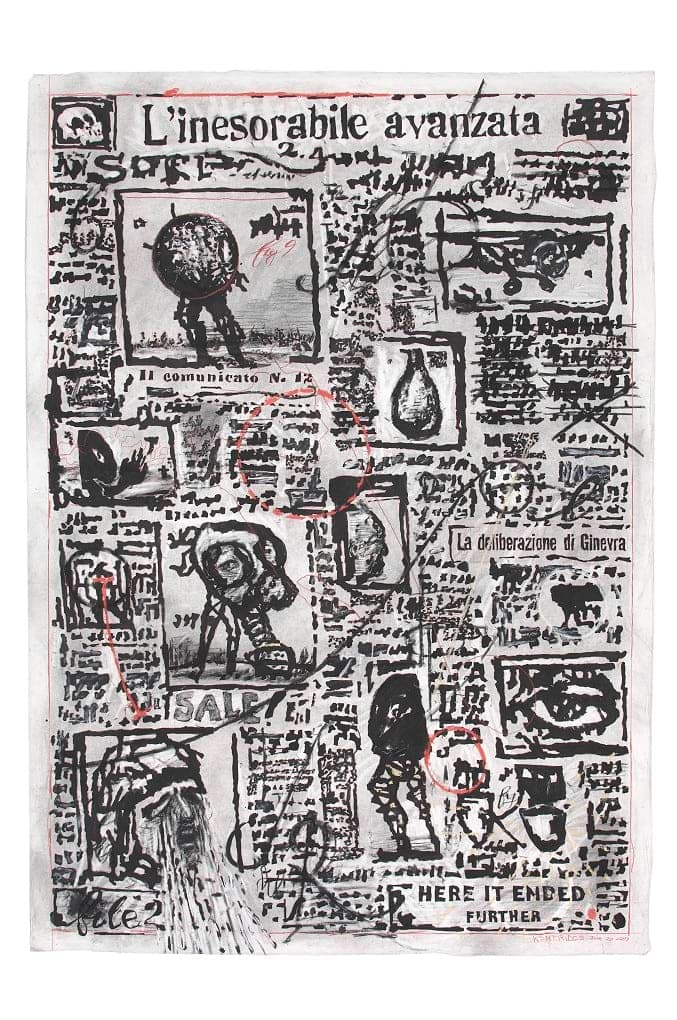 L'inesorabile avanzata
Fig 9
Il comunicato N. 12
La deliberazione di Ginevra
SALE
file 2
HERE IT ENDED
FURTHER